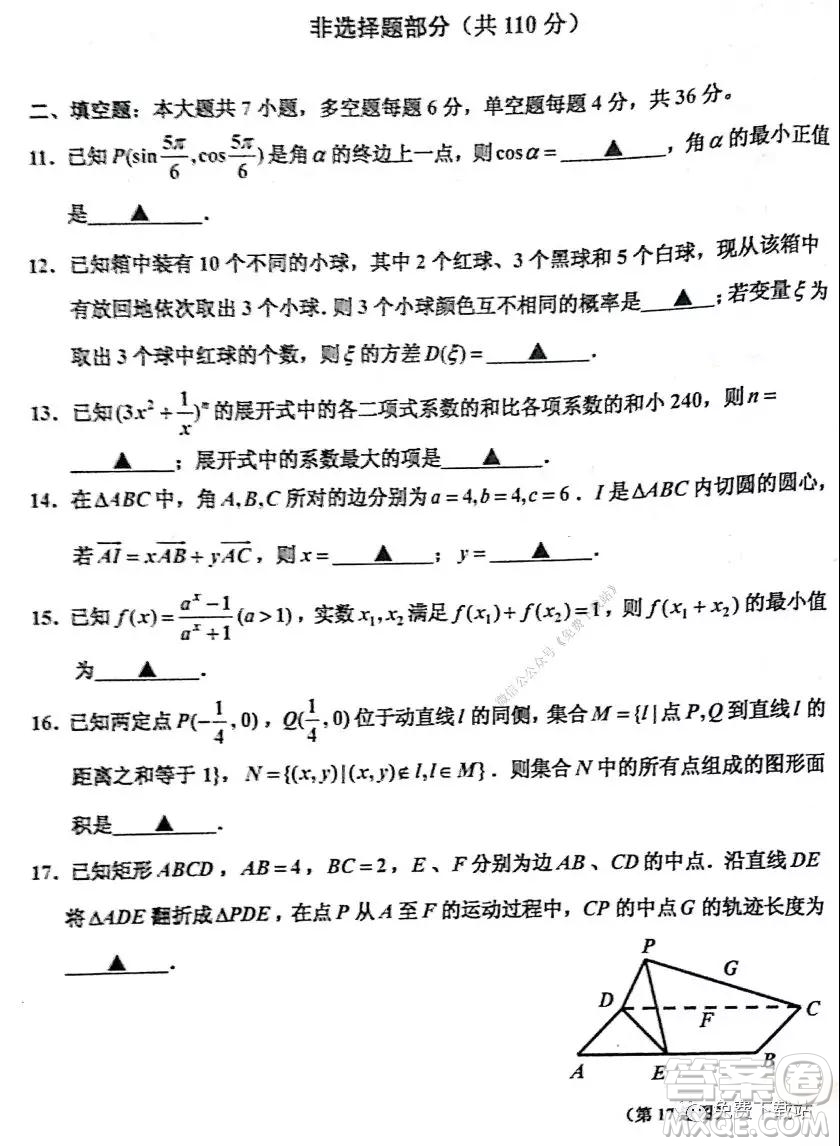 非选择题部分（共 110 分）
二、填空题：本大题共 7 小题，多空题每题 6 分，单空题每题 4 分，共 36 分。
11．已知 P(sin 5π/6, cos 5π/6) 是角 α 的终边上一点，则 cos α = ▲ ，角 α 的最小正值
是 ▲ ．
12．已知箱中装有 10 个不同的小球，其中 2 个红球、3 个黑球和 5 个白球，现从该箱中
有放回地依次取出 3 个小球．则 3 个小球颜色互不相同的概率是 ▲ ；若变量 ξ 为
取出 3 个球中红球的个数，则 ξ 的方差 D(ξ) = ▲ ．
13．已知 (3x² + 1/x)ⁿ 的展开式中的各二项式系数的和比各项系数的和小 240，则 n =
▲ ；展开式中的系数最大的项是 ▲ ．
14．在 ΔABC 中，角 A, B, C 所对的边分别为 a = 4, b = 4, c = 6 ．I 是 ΔABC 内切圆的圆心，
若 \overrightarrow{AI} = x\overrightarrow{AB} + y\overrightarrow{AC}，则 x = ▲ ；y = ▲ ．
15．已知 f(x) = (aˣ − 1)/(aˣ + 1) (a > 1)，实数 x₁, x₂ 满足 f(x₁) + f(x₂) = 1，则 f(x₁ + x₂) 的最小值
为 ▲ ．
微信公众号《免费下载站》
16．已知两定点 P(−1/4, 0)，Q(1/4, 0) 位于动直线 l 的同侧，集合 M = {l | 点 P, Q 到直线 l 的
距离之和等于 1}，N = {(x, y) | (x, y) ∉ l, l ∈ M}．则集合 N 中的所有点组成的图形面
积是 ▲ ．
17．已知矩形 ABCD，AB = 4，BC = 2，E、F 分别为边 AB、CD 的中点．沿直线 DE
将 ΔADE 翻折成 ΔPDE，在点 P 从 A 至 F 的运动过程中，CP 的中点 G 的轨迹长度为
▲ ．
P
G
D
F
C
A
E
B
答案卷
（第 17 题图）
免费下载站